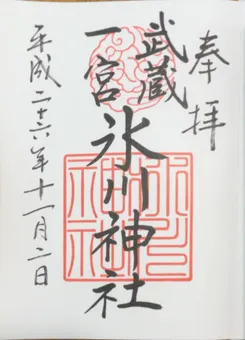 奉拝
武蔵
一宮
氷川神社
平成二十六年十一月二日